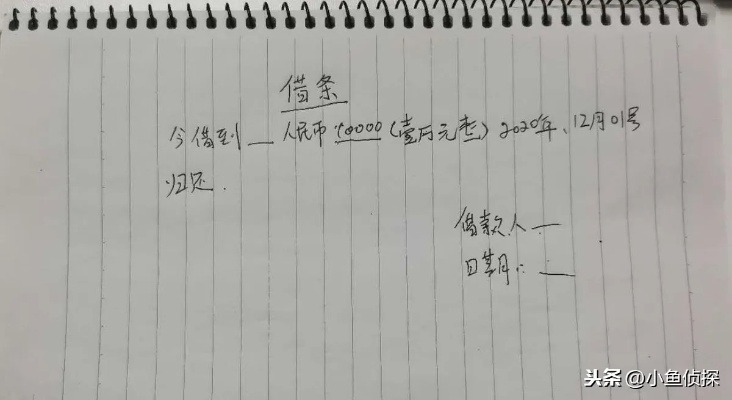 借条
今借到__人民币10000(壹万元整)2020年、12月01号
归还.
借款人__
日期:__
头条@小鱼侦探